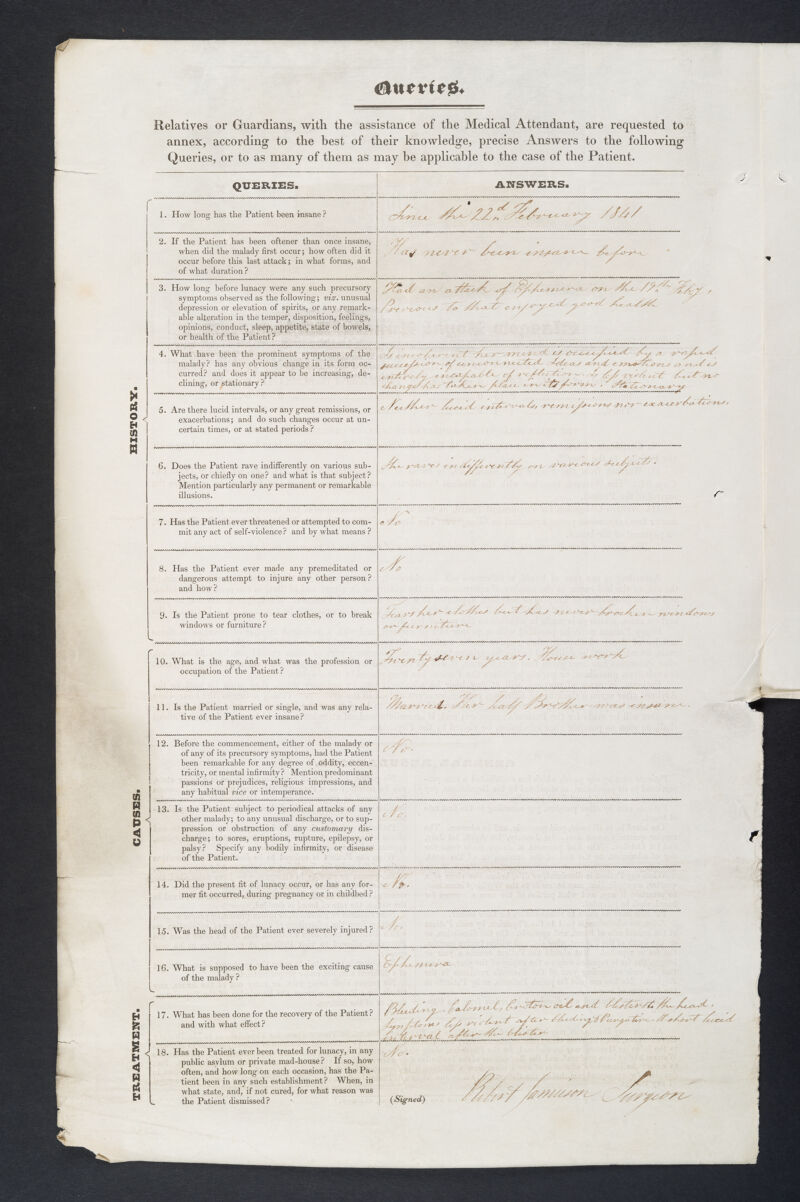 Queries.
Relatives or Guardians, with the assistance of the Medical Attendant, are requested to
annex, according to the best of their knowledge, precise Answers to the following
Queries, or to as many of them as may be applicable to the case of the Patient.
QUERIES.
ANSWERS.
HISTORY.
1. How long has the Patient been insane?
Since the 22d February 1841
2. If the Patient has been oftener than once insane,
when did the malady first occur; how often did it
occur before this last attack; in what forms, and
of what duration?
Has never been insane before
3. How long before lunacy were any such precursory
symptoms observed as the following; viz. unusual
depression or elevation of spirits, or any remark-
able alteration in the temper, disposition, feelings,
opinions, conduct, sleep, appetite, state of bowels,
or health of the Patient?
Had an attack of Ephemera on the 19th Feby,
Previous to that enjoyed good health
4. What have been the prominent symptoms of the
malady? has any obvious change in its form oc-
curred? and does it appear to be increasing, de-
clining, or stationary?
Is incoherent her mind is occupied by a rapid
succession of unconnected ideas and emotions and is
entirely incapable of reflection is less violent but no
change has taken place in its form. Stationary
5. Are there lucid intervals, or any great remissions, or
exacerbations; and do such changes occur at un-
certain times, or at stated periods?
Neither lucid intervals, remissions nor exacerbations.
6. Does the Patient rave indifferently on various sub-
jects, or chiefly on one? and what is that subject?
Mention particularly any permanent or remarkable
illusions.
She raves indifferently on various subjects.
7. Has the Patient ever threatened or attempted to com-
mit any act of self-violence? and by what means?
No
8. Has the Patient ever made any premeditated or
dangerous attempt to injure any other person?
and how?
No
9. Is the Patient prone to tear clothes, or to break
windows or furniture?
Tears her clothes but has never broken windows
or furniture
CAUSES.
10. What is the age, and what was the profession or
occupation of the Patient?
Twenty seven years. House work
11. Is the Patient married or single, and was any rela-
tive of the Patient ever insane?
Married. Her half Brother was insane.
12. Before the commencement, either of the malady or
of any of its precursory symptoms, had the Patient
been remarkable for any degree of oddity, eccen-
tricity, or mental infirmity? Mention predominant
passions or prejudices, religious impressions, and
any habitual vice or intemperance.
No.
13. Is the Patient subject to periodical attacks of any
other malady; to any unusual discharge, or to sup-
pression or obstruction of any customary dis-
charge; to sores, eruptions, rupture, epilepsy, or
palsy? Specify any bodily infirmity, or disease
of the Patient.
No.
14. Did the present fit of lunacy occur, or has any for-
mer fit occurred, during pregnancy or in childbed?
No.
15. Was the head of the Patient ever severely injured?
No.
16. What is supposed to have been the exciting cause
of the malady?
Ephemera
TREATMENT.
17. What has been done for the recovery of the Patient?
and with what effect?
Bleeding. Calomel, Croton oil and blister to the head.
Symptoms less violent after bleeding & Purgation. A short lucid
interval after the blister
18. Has the Patient ever been treated for lunacy, in any
public asylum or private mad-house? If so, how
often, and how long on each occasion, has the Pa-
tient been in any such establishment? When, in
what state, and, if not cured, for what reason was
the Patient dismissed?
No.
(Signed) Robert Jamieson Surgeon